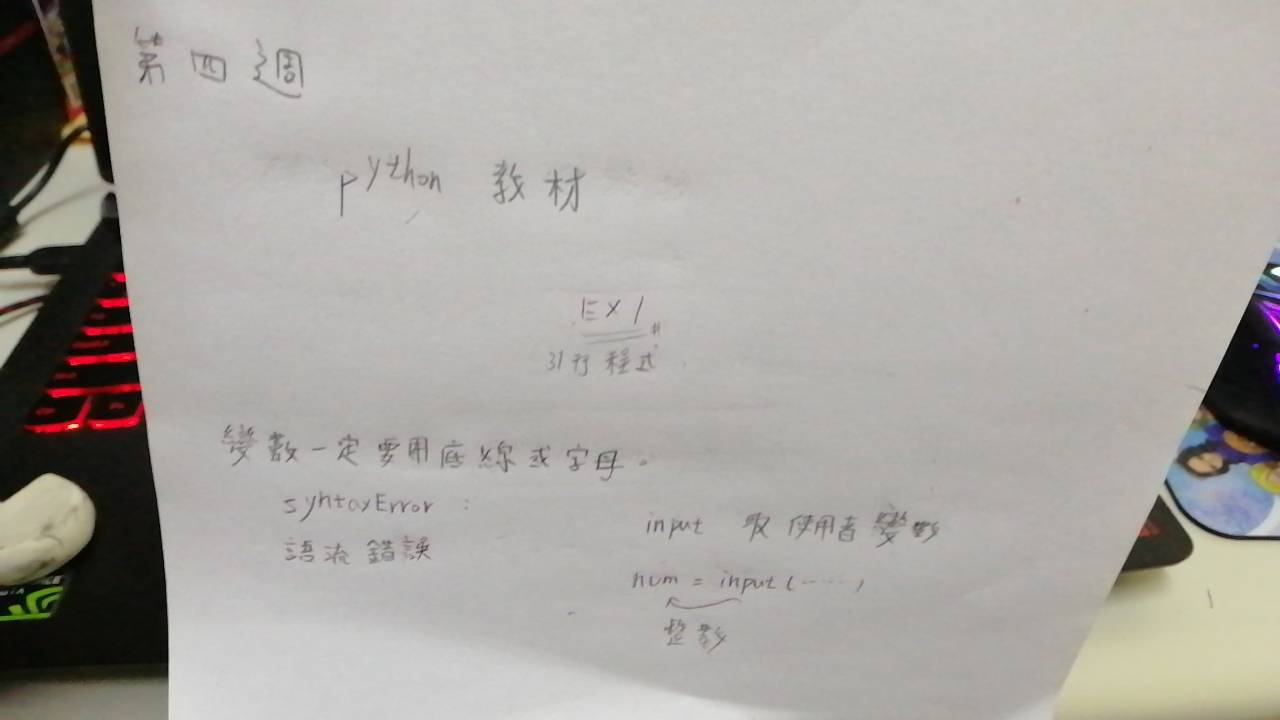 第四週
python 教材
EX1
31行程式
變數一定要用底線或字母。
syntaxError :
語法錯誤
input 取使用者變數
num = input(……)
整數